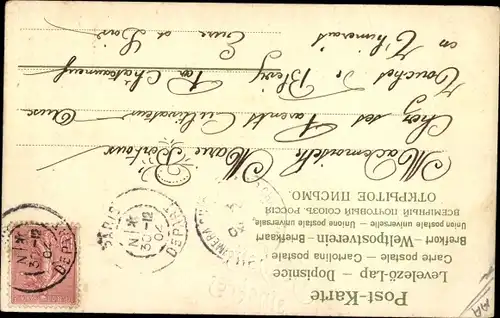 Post-Karte
Levelező-Lap — Dopisnice
Carte postale — Cartolina postale
Brefkort — Weltpostverein — Briefkaart
Union postale universelle — Unione postale universale
ВСЕМІРНЫЙ ПОЧТОВЫЙ СОЮЗЪ. РОССІЯ
ОТКРЫТОЕ ПИСЬМО.
Mademoiselle Marie
Chez ses Parents Cultivateur
de Blévy Par Châteauneuf
en Thimerais
Eure et Loir
PARIS
30-12
04
DEPART
30-12
04
DEPART
AA